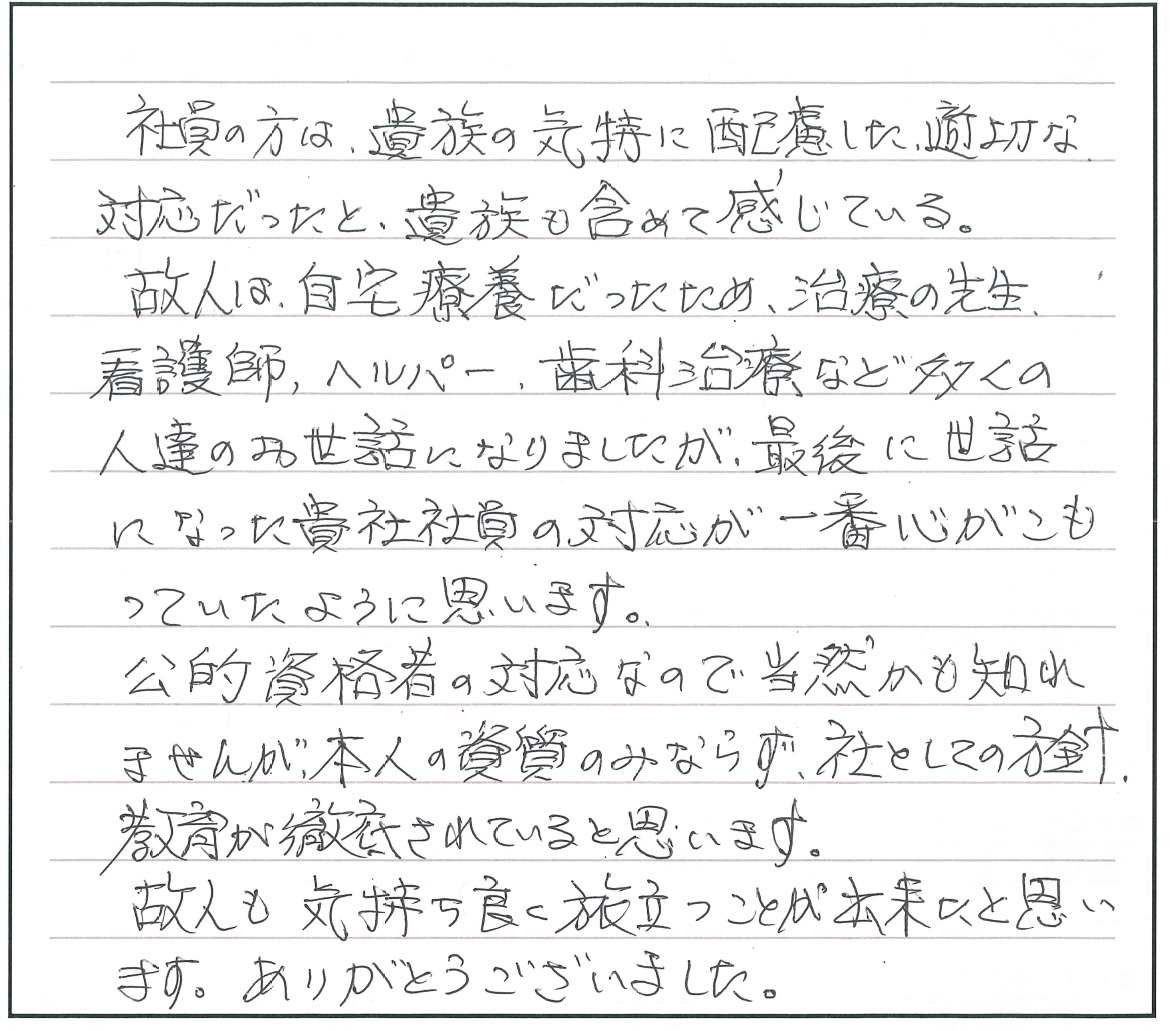 社員の方は、遺族の気持に配慮した、適切な
対応だったと、遺族も含めて感じている。
故人は、自宅療養だったため、治療の先生、
看護師、ヘルパー、歯科治療など多くの
人達のお世話になりましたが、最後に世話
になった貴社社員の対応が一番心がこも
っていたように思います。
公的資格者の対応なので当然かも知れ
ませんが、本人の資質のみならず、社としての方針、
教育が徹底されていると思います。
故人も気持ち良く旅立つことが出来たと思い
ます。ありがとうございました。